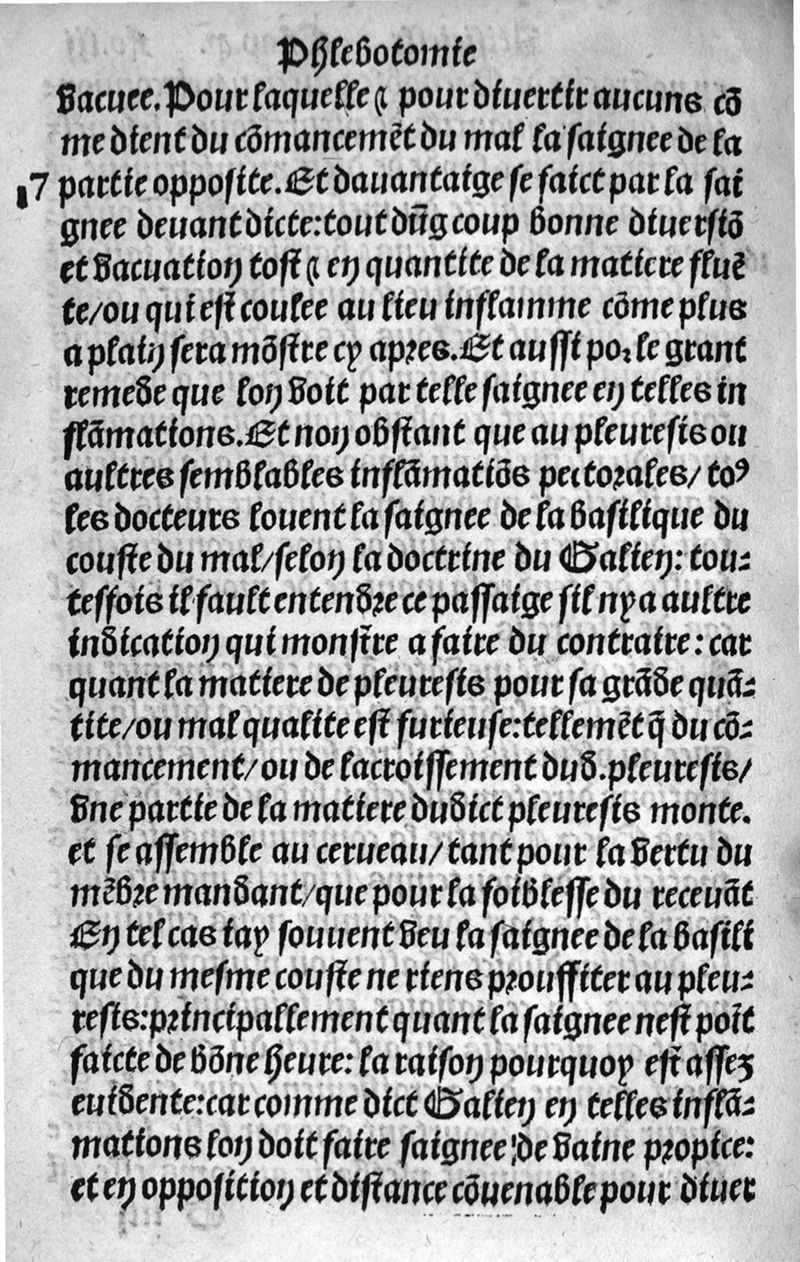 Phlebotomie
vacuee. Pour laquelle ⁊ pour diuertir aucuns cō
me dient du cōmancemēt du mal la saignee de la
7 partie opposite. Et dauantaige se faict par la sai
gnee deuant dicte: tout dūg coup bonne diuersiō
et vacuation tost ⁊ en quantite de la matiere fluē
te/ou qui est coulee au lieu inflamme cōme plus
a plain sera mōstre cy apres. Et aussi poꝛ le grant
remede que lon voit par telle saignee en telles in
flāmations. Et non obstant que au pleuresis ou
aultres semblables inflāmatiōs pectorales/ toꝰ
les docteurs louent la saignee de la basilique du
couste du mal/selon la doctrine du Galien: tou-
tesfois il fault entendre ce passaige sil ny a aultre
indication qui monstre a faire du contraire: car
quant la matiere de pleuresis pour sa grāde quā-
tite/ou mal qualite est furieuse: tellemēt q̄ du cō-
mancement/ou de lacroissement dud. pleuresis/
vne partie de la matiere dudict pleuresis monte.
et se assemble au cerueau/tant pour la vertu du
mēbre mandant/que pour la foiblesse du receuāt
En tel cas iay souuent veu la saignee de la basili
que du mesme couste ne riens prouffiter au pleu-
resis: principallement quant la saignee nest poīt
faicte de bōne heure: la raison pourquoy est assez
euidente: car comme dict Galien en telles inflā-
mations lon doit faire saignee de vaine propice:
et en opposition et distance cōuenable pour diuer